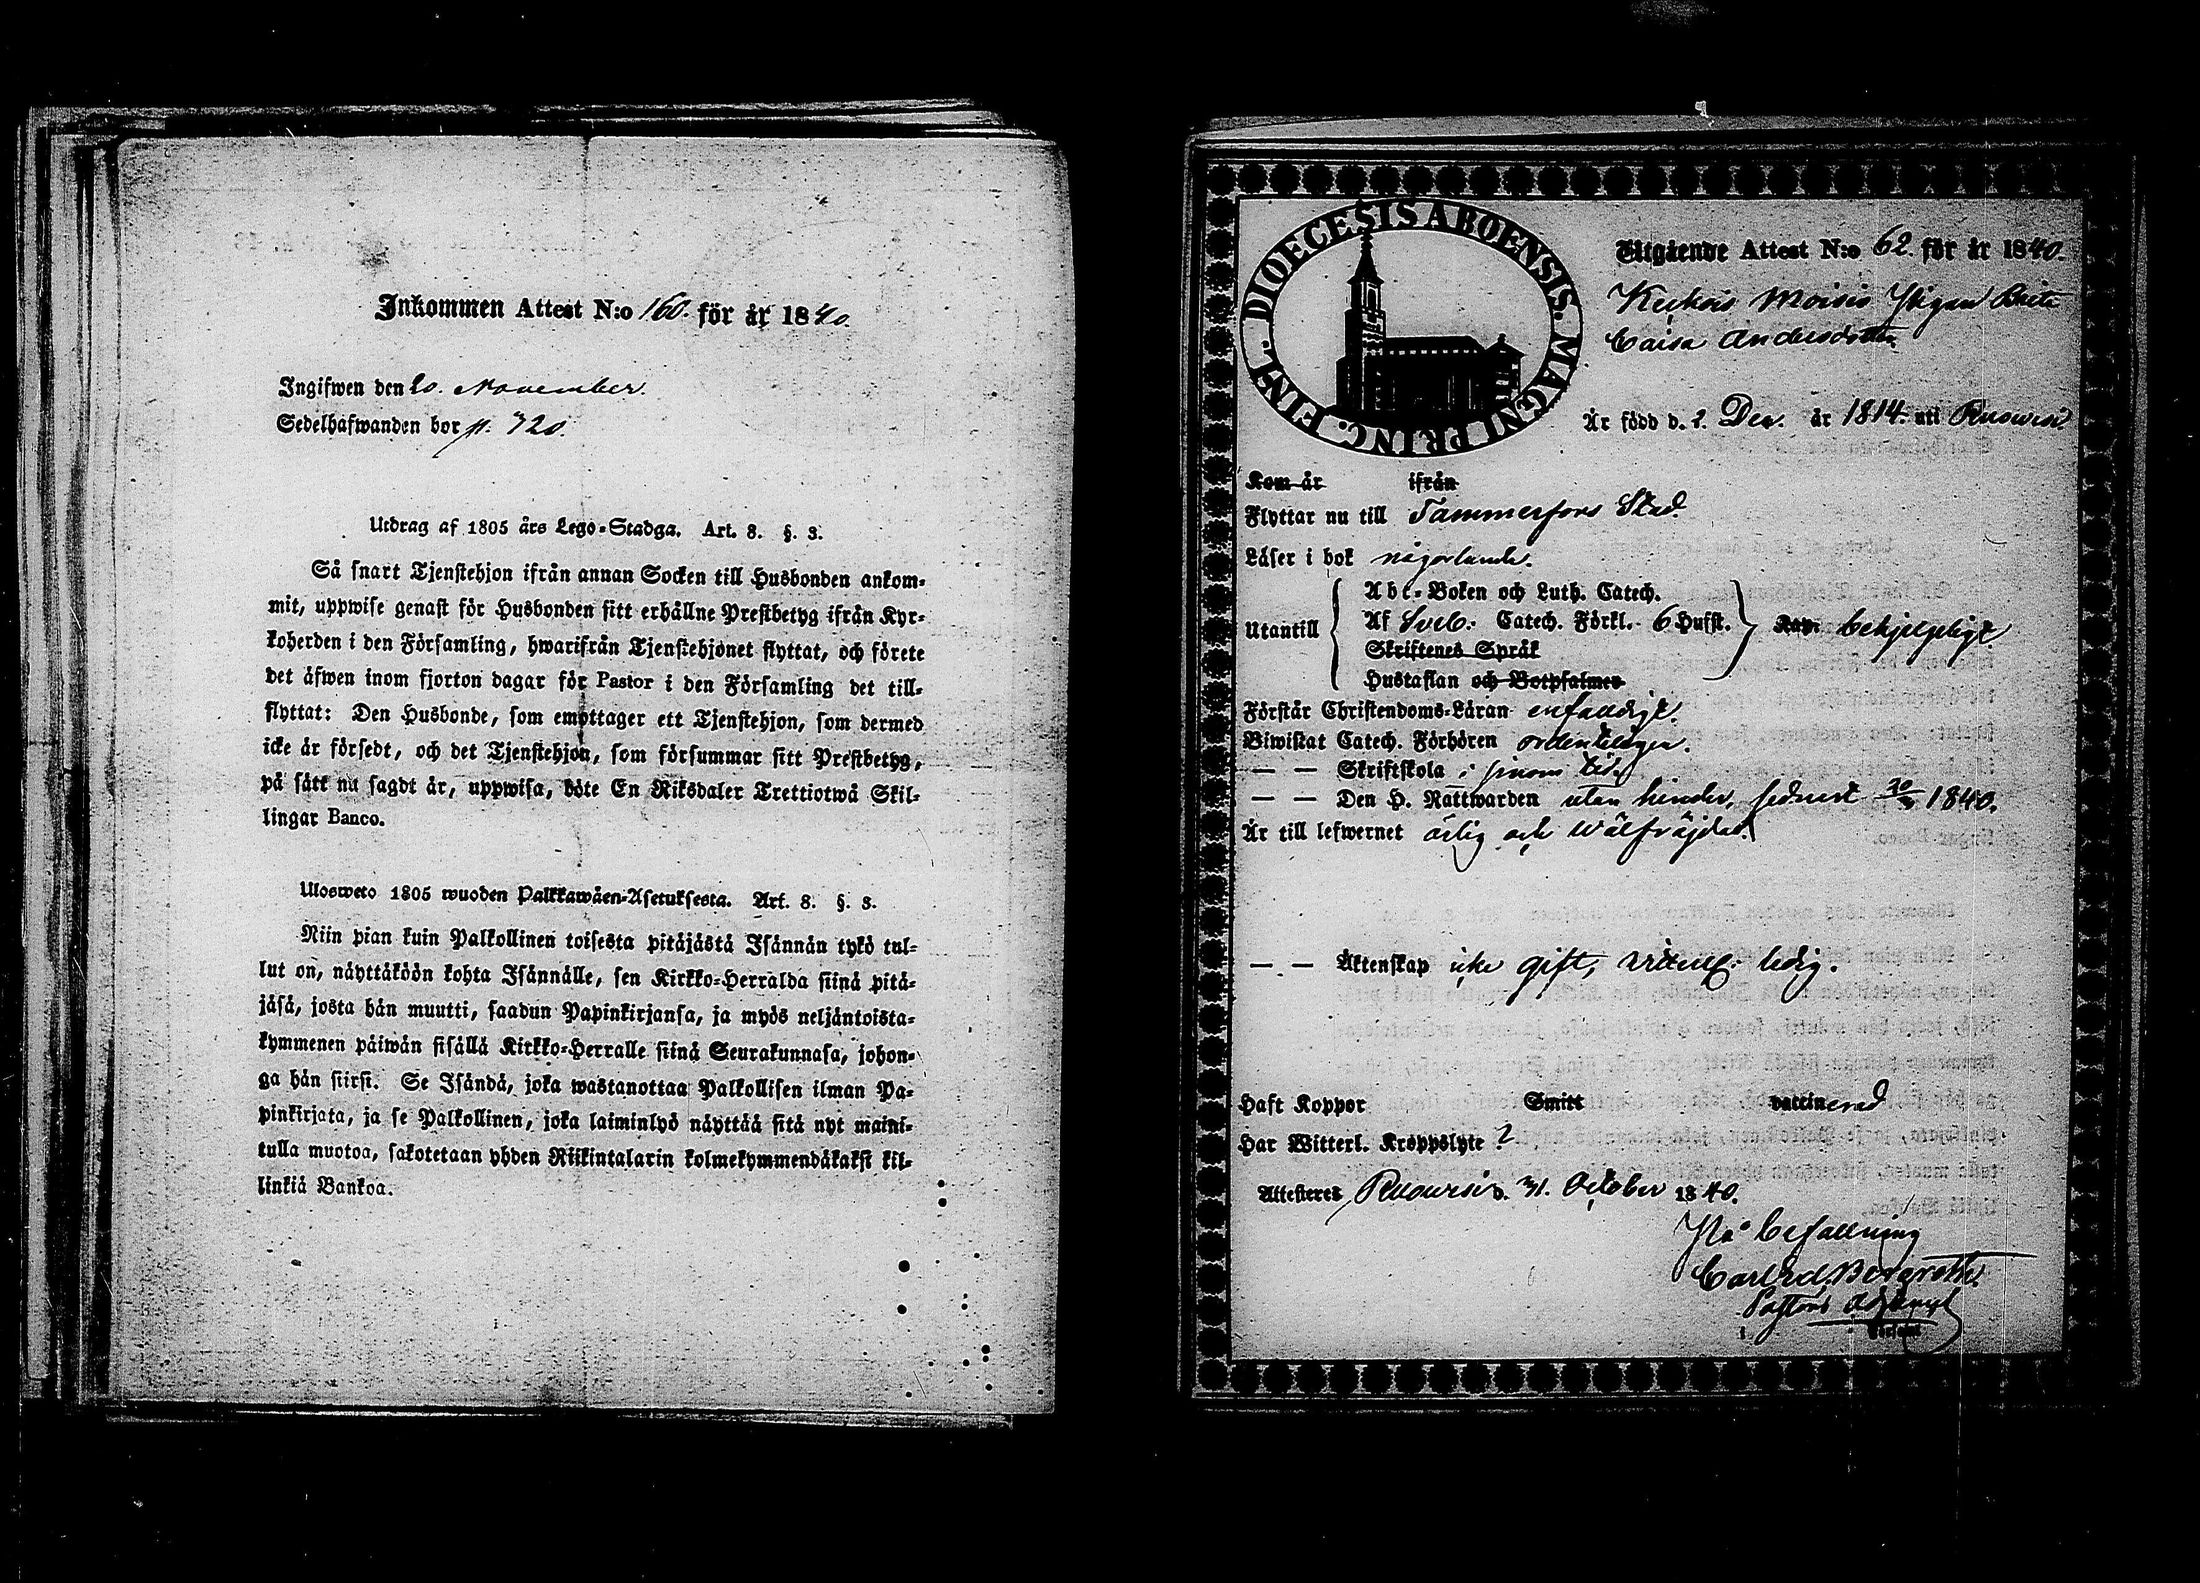 Inkommen Attest N:o 160. för år 1840.
Ingifwen den 20. November.
Sedelhafwanden bor p. 720.
Utdrag af 1805 års Lego-Stadga. Art. 8. §. 3.
Så snart Tjenstehjon ifrån annan Socken till Husbonden ankom-
mit, uppwise genast för Husbonden sitt erhållne Prestbetyg ifrån Kyr-
koherden i den Församling, hwarifrån Tjenstehjonet flyttat, och förete
det äfwen inom fjorton dagar för Pastor i den Församling det till-
flyttat: Den Husbonde, som emottager ett Tjenstehjon, som dermed
icke är försedt, och det Tjenstehjon, som försummar sitt Prestbetyg,
på sätt nu sagdt är, uppwisa, böte En Riksdaler Trettiotwå Skil-
lingar Banco.
Ulosweto 1805 wuoden Palkkawäen-Asetuksesta. Art. 8. §. 3.
Niin pian kuin Palkollinen toisesta pitäjästä Isännän tykö tul-
lut on, näyttäköön kohta Isännälle, sen Kirkko-Herralda siinä pitä-
jäsä, josta hän muutti, saadun Papinkirjansa, ja myös neljäntoista-
kymmenen päiwän sisällä Kirkko-Herralle siinä Seurakunnasa, johon-
ga hän siirsi. Se Isändä, joka wastanottaa Palkollisen ilman Pa-
pinkirjata, ja se Palkollinen, joka laiminlyö näyttää sitä nyt maini-
tulla muotoa, sakotetaan yhden Riikintalarin kolmekymmendäkaksi kil-
linkiä Bankoa.
DIOECESIS ABOENSIS. MAGNI PRINC. FINL.
Utgående Attest N:o 62. för år 1840.
Moisio Pigan Brita
Caisa Andersdotter
Är född d. 2. Dec. år 1814. uti Ruowesi.
Kom år ifrån
Flyttar nu till Tammerfors Stad.
Läser i bok någorlunda.
Utantill
Abc-Boken och Luth. Catech.
Af Sveb: Catech. Förkl. 6 Hufst.
Skriftenes Språk
Hustaflan och Botpsalmer
Kap. behjelpeligt
Förstår Christendoms-Läran enfaldigt.
Biwistat Catech. Förhören ordenteligen.
— — Skriftskola i sinom tid.
— — Den H. Nattwarden utan hinder, sednest 1840.
Är till lefwernet ärlig och wälfräjdad.
— — Äktenskap icke gift, ledig.
Haft Koppor Smitt vaccinerad
Har Witterl. Kroppslyte ?
Attesteres Ruowesi d. 31. October 1840.
På befallning
Carl Bergroth.
Pastors Adjunct